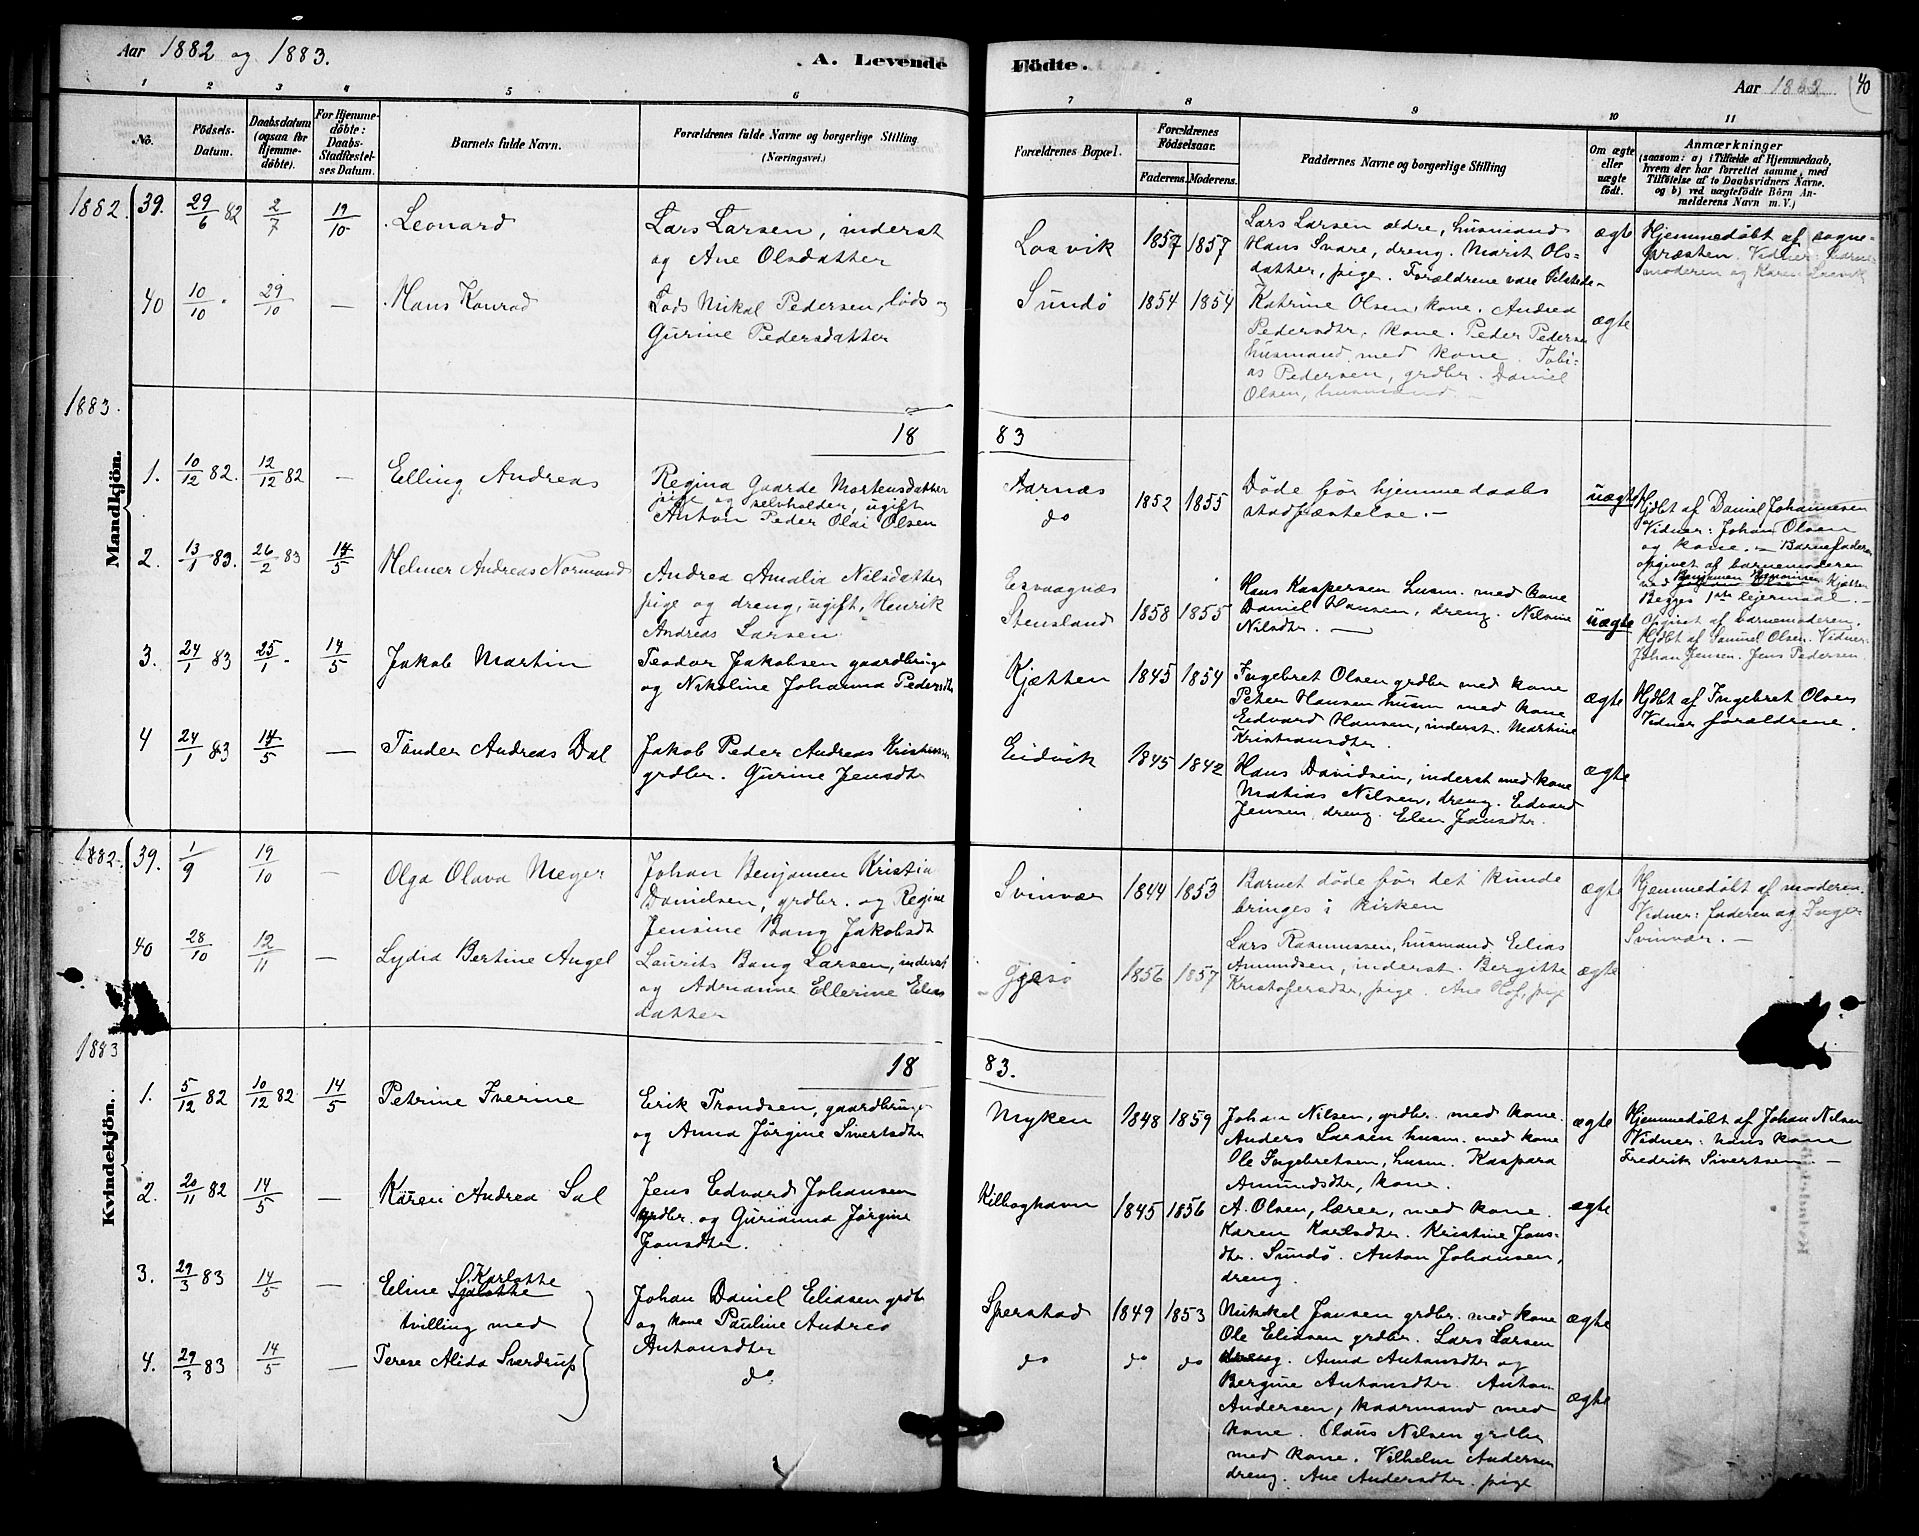 Aar 1882 og 1883.
A. Levende Födte.
Aar 1883
40
1 2 3 4 5 6 7 8 9 10 11
No.
Födsels-Datum.
Daabsdatum (ogsaa for Hjemmedöbte).
For Hjemmedöbte: Daabs-Stadfæstelses Datum.
Barnets fulde Navn.
Forældrenes fulde Navne og borgerlige Stilling
(Næringsvei.)
Forældrenes Bopæl.
Forældrenes Födselsaar.
Faderens. Moderens.
Faddernes Navne og borgerlige Stilling
Om ægte eller uægte födt.
Anmærkninger
(saasom: a) i Tilfælde af Hjemmedaab,
hvem der har forrettet samme, med
Tilföielse af to Daabsvidners Navne.
og b) ved uægtefödte Börn Anmelderens Navn m. V.)
Mandkjön.
1882. 39. 29/6 82 2/7 19/10 Leonard
Lars Larsen, inderst
og Ane Olsdatter
Losvik 1857 1857
Lars Larsen ældre, husmand
Hans Svare, dreng. Marit Ols-
datter, pige. Forældrene vare tilstede
ægte
Hjemmedøbt af sogne-
præsten. Vidner:
moderen og Karen Losvik
40 10/10 29/10 — Hans Konrad
Lods Mikal Pedersen, lods og
Gurine Pedersdatter
Sundö 1854 1854
Katrine Olsen, kone. Andrea
Pedersdtr, kone. Peder Pedersen
husmand med kone. Tobi-
as Pedersen, grdbr. Daniel
Olsen, husmand.
ægte
1883.
18 83
1. 10/12 82. 12/12 82 — Elling Andreas
Regina Gaarde Mortensdatter
pige og selvholder, ugift
Anton Peder Olai Olsen
Aarnæs 1852 1855
do
Døde før hjemmedaabs
stadfæstelse. —
uægte
Hjdbt af Daniel Johannesen
Vidner: Johan Olsen
og kone. — Barnefaderen
opgivet af barnemoderen
Kjætten
Begges 1ste leiermaal —
2. 13/1 83. 26/2 83 14/5 Helmer Andreas Normand
Andrea Amalia Nilsdatter
pige og dreng, ugift, Henrik
Andreas Larsen
Esvaagnæs
Stensland 1858 1855
Hans Kaspersen husm. med kone
Daniel Hansen, dreng. Nilsine
Nilsdtr. —
uægte
Opgivet af barnemoderen.
Hjdbt af Samuel Olsen. Vidner:
Johan Jensen. Jens Pedersen
3. 24/1 83 25/1 14/5 Jakob Martin
Teodor Jakobsen gaardbruger
og Nikoline Johanna Pedersdtr
Kjætten 1845 1854
Ingebret Olsen grdbr med kone
Peter Hansen husm med kone
Edvard Hansen, inderst. Martine
Kristiansdtr.
ægte
Hjdbt af Ingebret Olsen
Vidner forældrene.
4 24/1 83 14/5 — Tønder Andreas Dal
Jakob Peder Andreas Kristensen
grdbr. Gurine Jensdtr
Eidvik 1845 1842
Hans Davidsen, inderst med kone
Matias Nilsen, dreng. Edvard
Jensen dreng. Elen Jansdtr.
ægte
Kvindekjön.
1882. 39. 1/9 19/10 — Olga Olava Meyer
Johan Benjamen Kristia
Danielsen, grdbr. og Regine
Jensine Bang Jakobsdt
Svinvær 1844 1853
Barnet døde før det kunde
bringes i kirken
ægte
Hjemmedøbt af moderen.
Vidner: faderen og Inger
Svinvær. —
40 28/10 12/11 — Lydia Bertine Angel
Laurits Bang Larsen, inderst
og Adrianne Ellerine Elias
datter
Gjesö 1856 1857
Lars Rasmussen, husmand Elias
Amundsen, inderst. Bergitte
Kristofersdtr, pige. Ane Hof, pige
ægte
1883
18 83.
1. 5/12 82 10/12 82 14/5 Petrine Iverine
Erik Trondsen, gaardbruger
og Anna Jørgine Sivertsdtr
Myken 1848 1859
Johan Nilsen, grdbr. med kone.
Anders Larsen husm. med kone
Ole Ingebretsen, husm. Kaspara
Amundsdtr, kone.
ægte
Hjemmedøbt af Johan Nilsen
Vidner: hans kone
Fredrik Sivertsen. —
2. 20/11 82 14/5 — Karen Andrea Sal
Jens Edvard Johansen
grdbr. og Gurianna Jørgine
Jensdtr.
Kilboghavn 1845 1856
A. Olsen, lærer, med kone.
Karen Karlsdtr. Kristine Jons-
dtr. Sundö. Anton Johansen,
dreng.
ægte
3. 29/3 83 14/5 — Eline Karlotte
tvilling med
Johan Daniel Eliasen grdbr
og kone Pauline Andrea
Antonsdtr
Sperstad 1849 1853
Nikkel Jansen grdbr. med kone
Ole Eliasen grdbr. Lars Larsen
dreng. Anna Antonsdtr og
ægte
4. 29/3 83 14/5 — Terese Alida Sverdrup
do.
do do do
Bergine Antonsdtr. Anton
Andersen, kaarmand med
kone. Olaus Nilsen grdbr
med kone. Vilhelm Andersen
dreng. Ane Andersdtr. pige
ægte